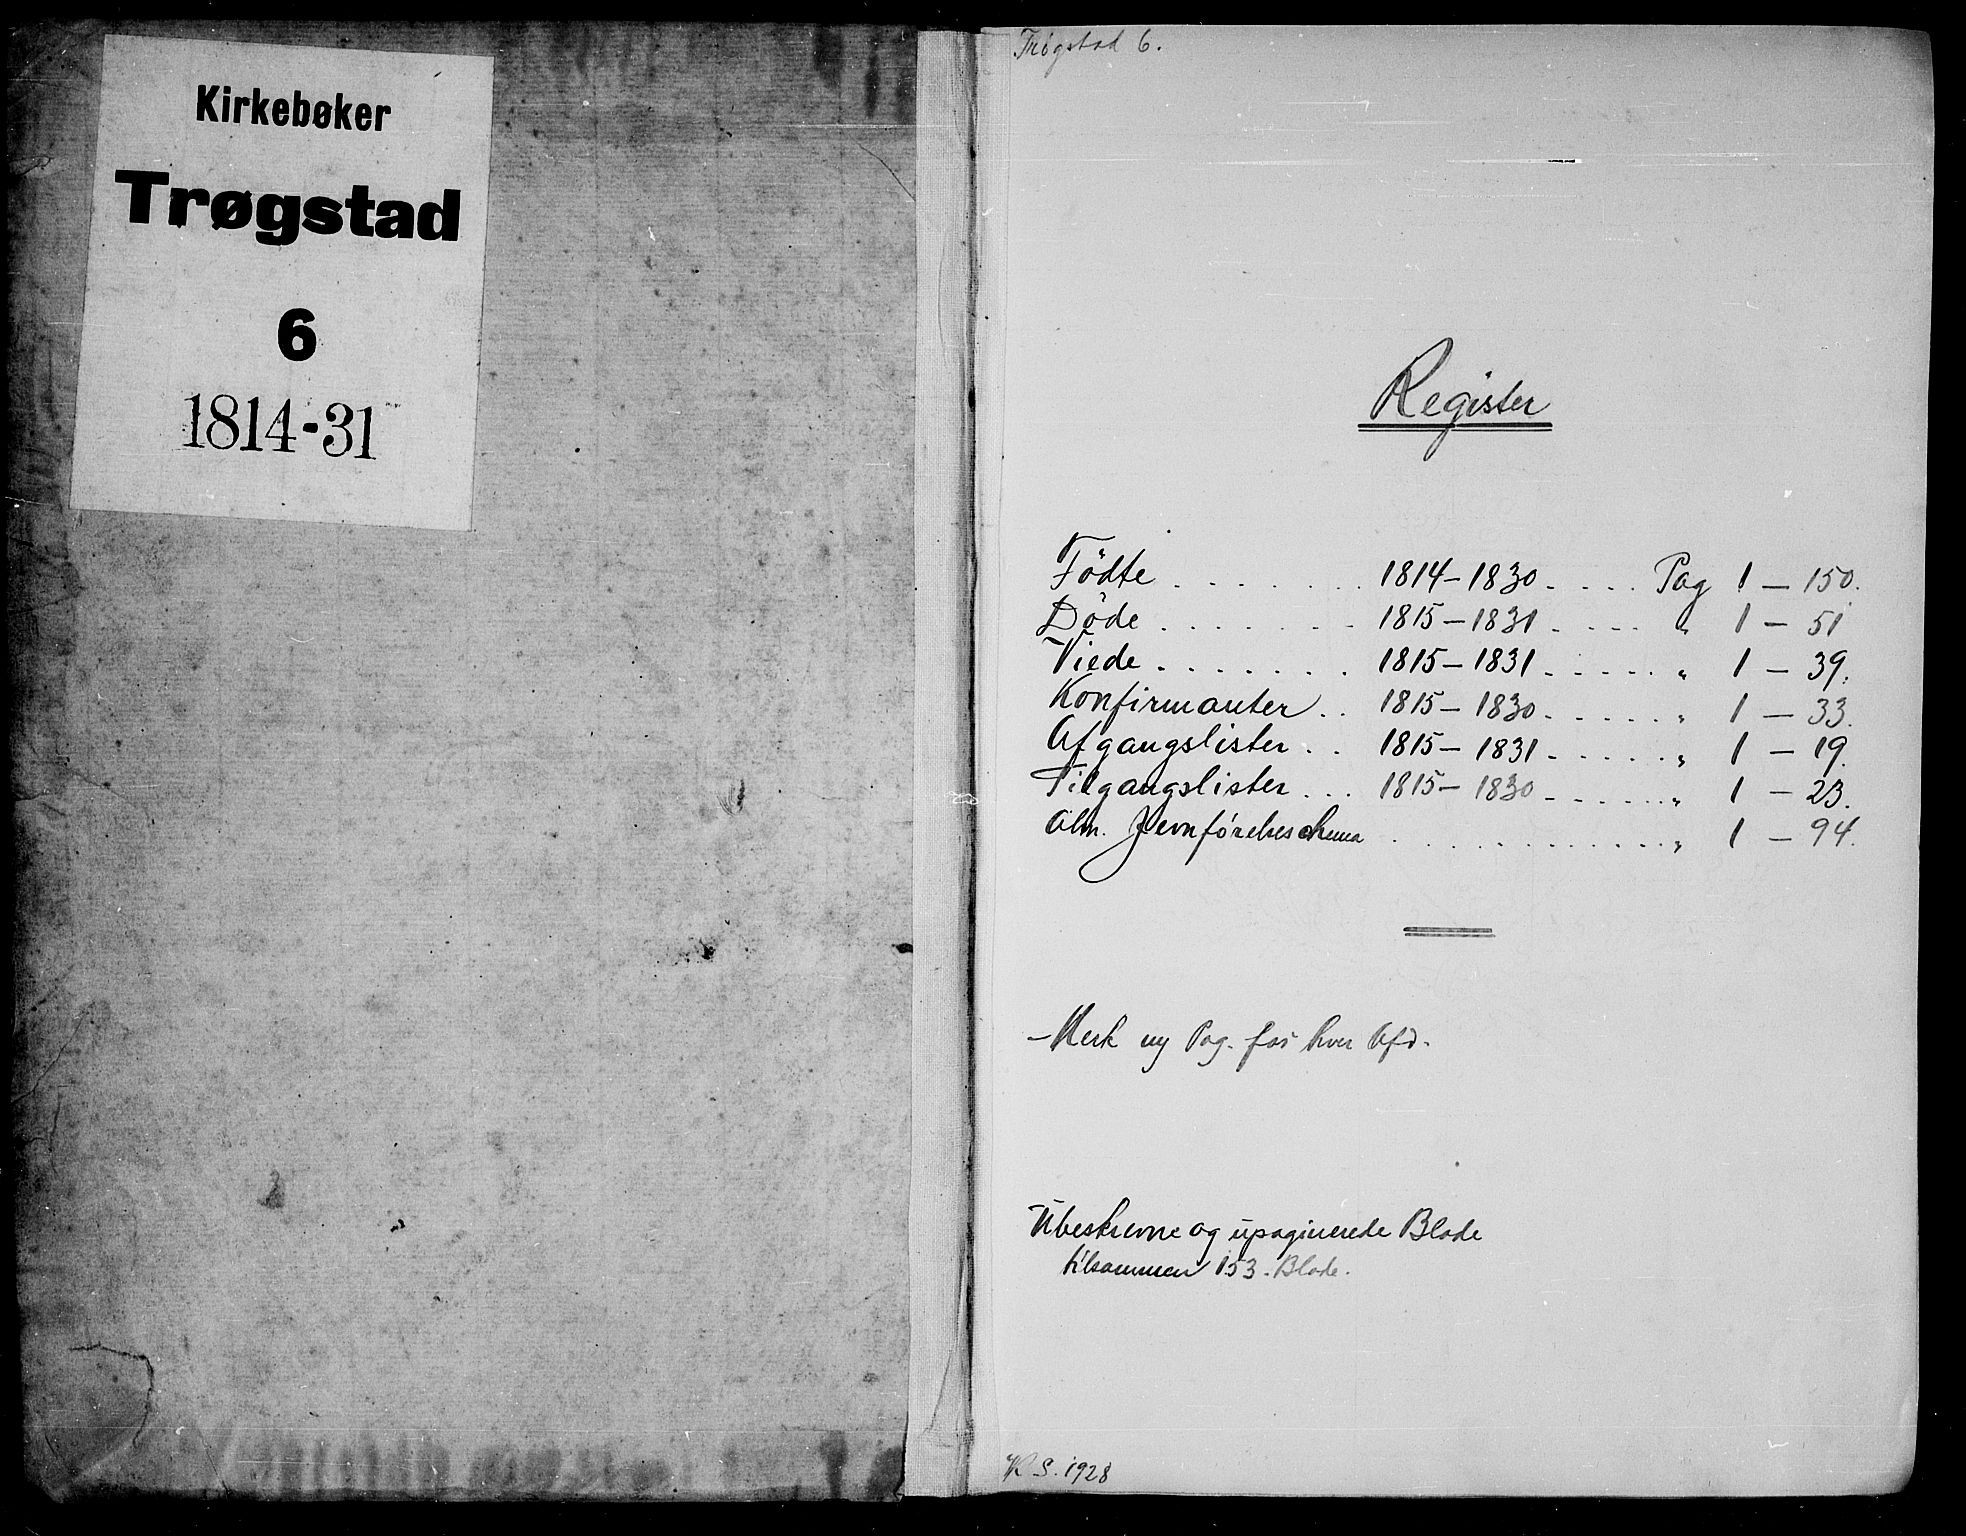 Kirkebøker
Trøgstad
6
1814-31
Trøgstad 6.
Register
Födte . . . . . . 1814-1830 . . . . Pag 1 - 150.
Döde . . . . . . 1815-1831 . . . . " 1 - 51
Viede . . . . . . 1815-1831 . . . . . " 1 - 39.
Konfirmanter . . 1815-1830 . . . . . " 1 - 33.
Afgangslister . . 1815-1831 . . . . . " 1 - 19.
Tilgangslister . . . 1815-1830 . . . . . " 1 - 23.
Alm. Jevnförelsesschema . . . . . . . . . . . " 1 - 94.
Merk ny Pag. for hver Afd.
Ubeskrevne og upaginerede Blade
tilsammen 153. Blade.
K S. 1928